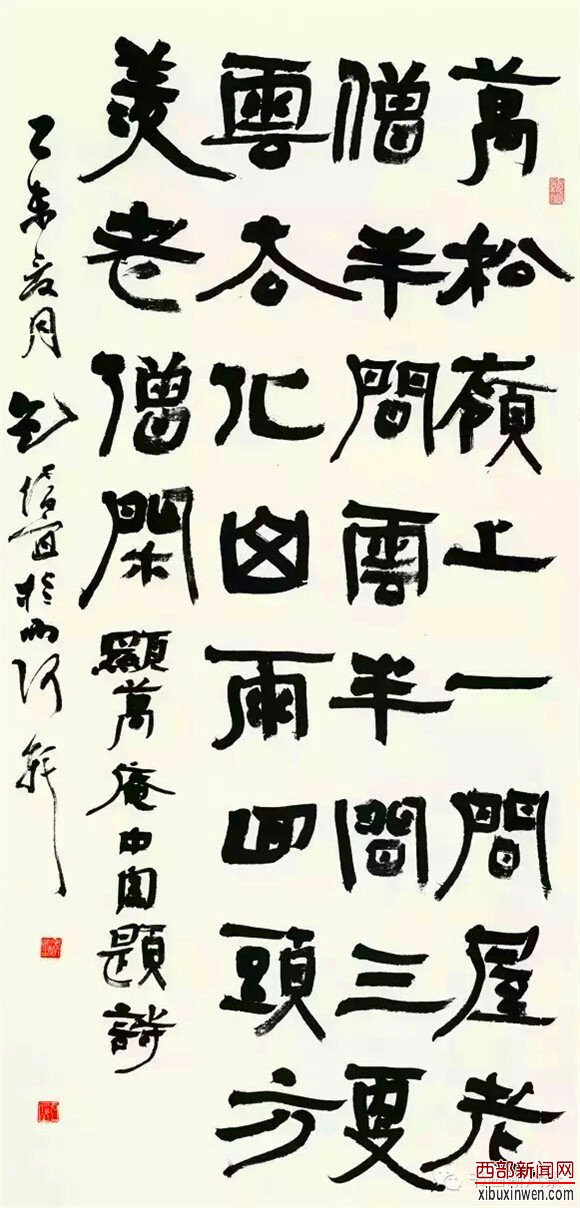 萬松嶺上一間屋老
僧半間雲半間三更
雲去化雨回頭方
羨老僧閑 顯萬庵中題詩
乙未夏月於軒
西部新闻网
xibuxinwen.com